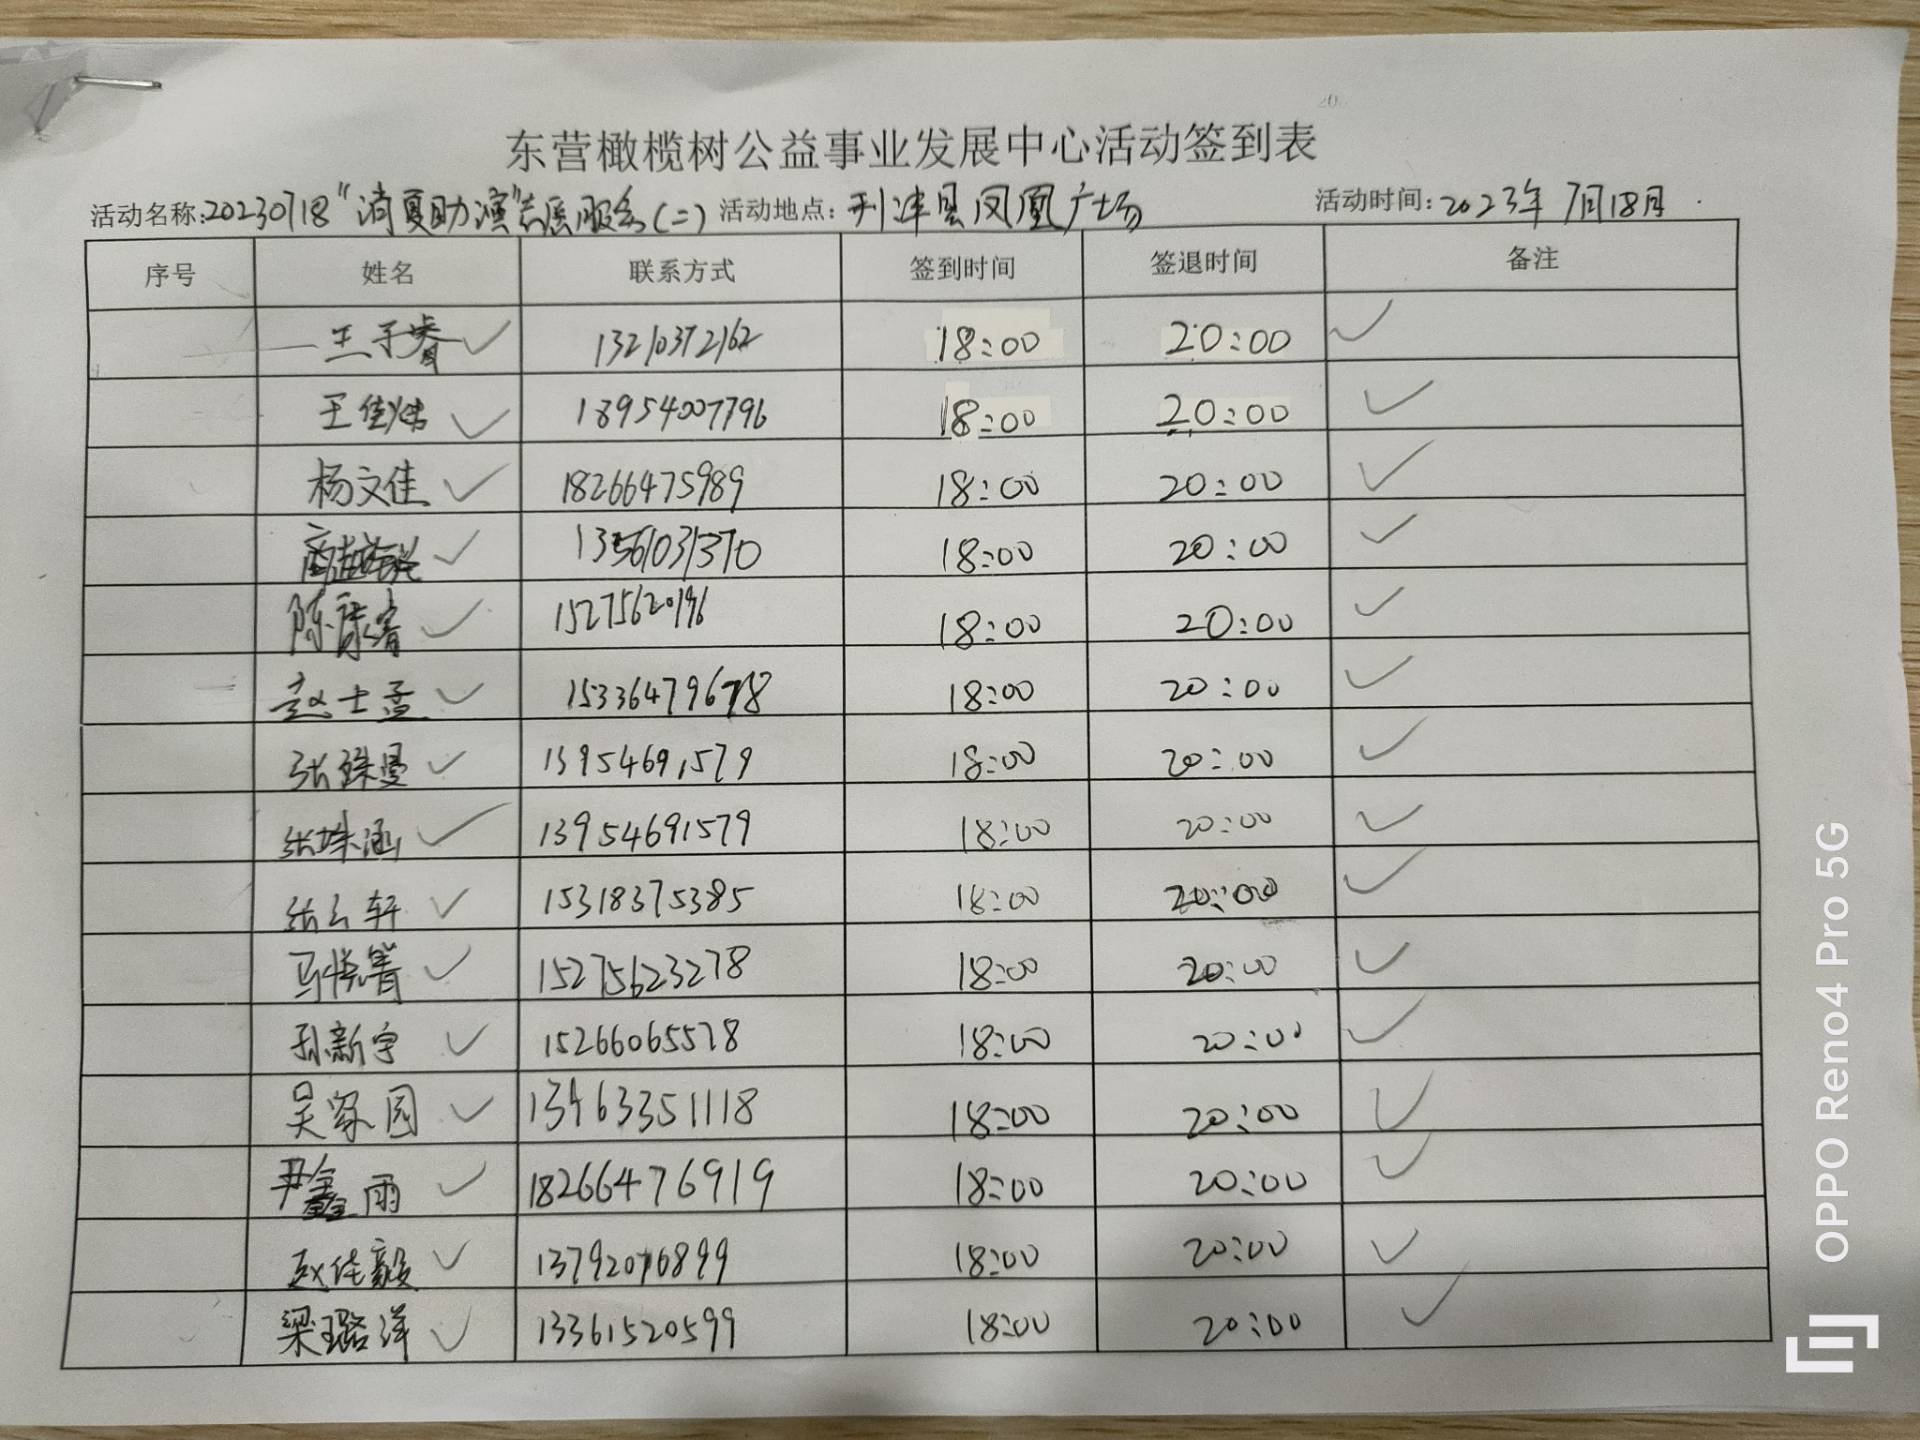 东营橄榄树公益事业发展中心活动签到表
活动名称:20230718“消夏助演”志愿服务(二) 活动地点:利津县凤凰广场 活动时间:2023年7月18日
序号 姓名 联系方式 签到时间 签退时间 备注
王子睿 ✓ 13210372162 18:00 20:00 ✓
王佳炜 ✓ 18954007796 18:00 20:00 ✓
杨文佳 ✓ 18266475989 18:00 20:00 ✓
✓ 13561031370 18:00 20:00 ✓
陈康睿 ✓ 15275620196 18:00 20:00 ✓
赵士孟 ✓ 15336479678 18:00 20:00 ✓
张臻曼 ✓ 13954691579 18:00 20:00 ✓
张臻涵 ✓ 13954691579 18:00 20:00 ✓
张云轩 ✓ 15318375385 18:00 20:00 ✓
马悦箐 ✓ 15275623278 18:00 20:00 ✓
孙新宇 ✓ 15266065578 18:00 20:00 ✓
吴家园 ✓ 13463351118 18:00 20:00 ✓
尹鑫雨 ✓ 18266476919 18:00 20:00 ✓
赵佳毅 ✓ 13792076899 18:00 20:00 ✓
梁璐洋 ✓ 13361520599 18:00 20:00 ✓
OPPO Reno4 Pro 5G